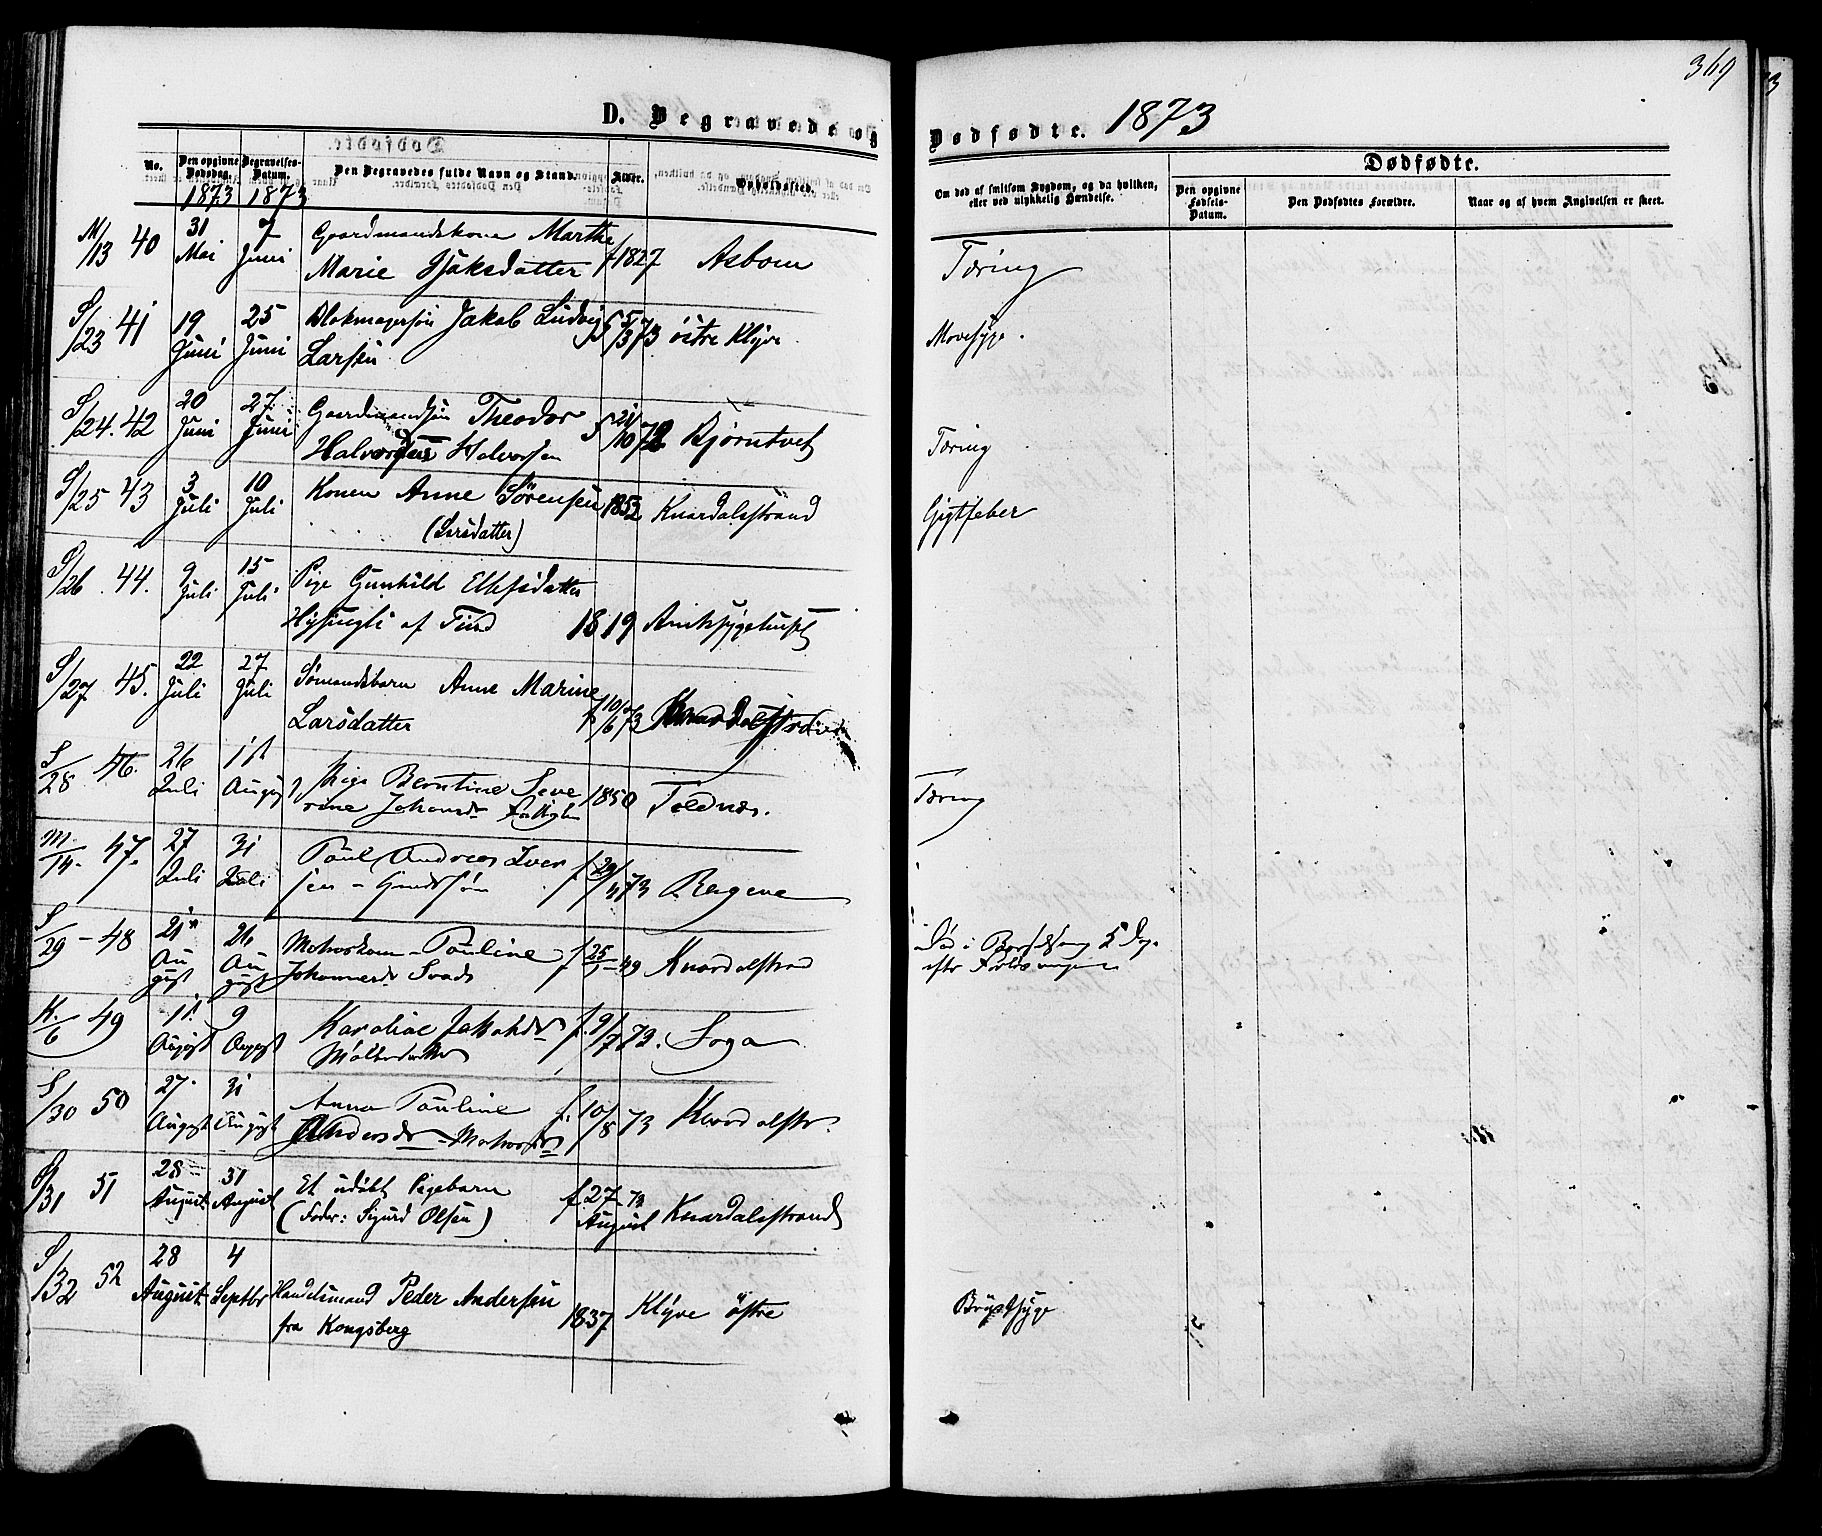 369
D. Begravede og Dødfødte. 1873
No.
Den opgivne Dødsdag. 1873
Begravelses-Datum. 1873
Den Begravedes fulde Navn og Stand.
Alder.
Opholdssted.
Om død af smitsom Sygdom, og da hvilken, eller ved ulykkelig Hændelse.
Dødfødte.
Den opgivne Fødsels-Datum.
Den Dødfødtes Forældre.
Naar og af hvem Angivelsen er skeet.
M/13 40 31 Mai 7 Juni Gaardmandskone Marthe
Marie Isaksdatter f 1827 Asbom Tæring
S/23 41 19 Juni 25 Juni Blokmagersøn Jakob Ludvig
Larsen f 5/3 73 östre Klyve
S/24. 42 20 Juni 27 Juni Gaardmandsøn Theodor
Halvorsen f 21/10 72 Bjørntvet Tæring
S/25 43 3 Juli 10 Juli Konen Anne Sörensen 1852 Knardalsstrand Gigtfeber
(Larsdatter)
S/26 44. 9 Juli 15 Juli Pige Gunhild Ellefsdatter
af Tind 1819 Amtssygehuset
S/27 45. 22 Juli 27 Juli Sømandsbarn Anne Marine
Larsdatter f 10/6 73 Knardalstrand
S/28 46. 26 Juli 1st August Pige Berntine Seve
rine Johansd 1850 Foldnæs. Tæring
M/14. 47. 27 Juli 31 Juli Paul Andreas Iver
sen f. 29/4 73 Bergene
S/29 - 48 21 August 26 August Matroskone Pauline
Johannesd f 25/1 - 49 Knardalstrand Død i Barselseng 5 Dage
efter
K./6 49 1. August 9 August Karoline Jakobsd f. 9/7 73. Soga
S/30 50 27 August 31 August Anna Pauline
Andersd f. 10/8 73 Knardalstr.
S/31 51 28 August 31 August Et udöbt Pigebarn
(Fader: Sigurd Olsen) f. 27 August 73 Knardalsstrand
S/32 52 28 August 4 Septbr Handelsmand Peder Andersen
fra Kongsberg 1837 Klyve östre Brystsyge